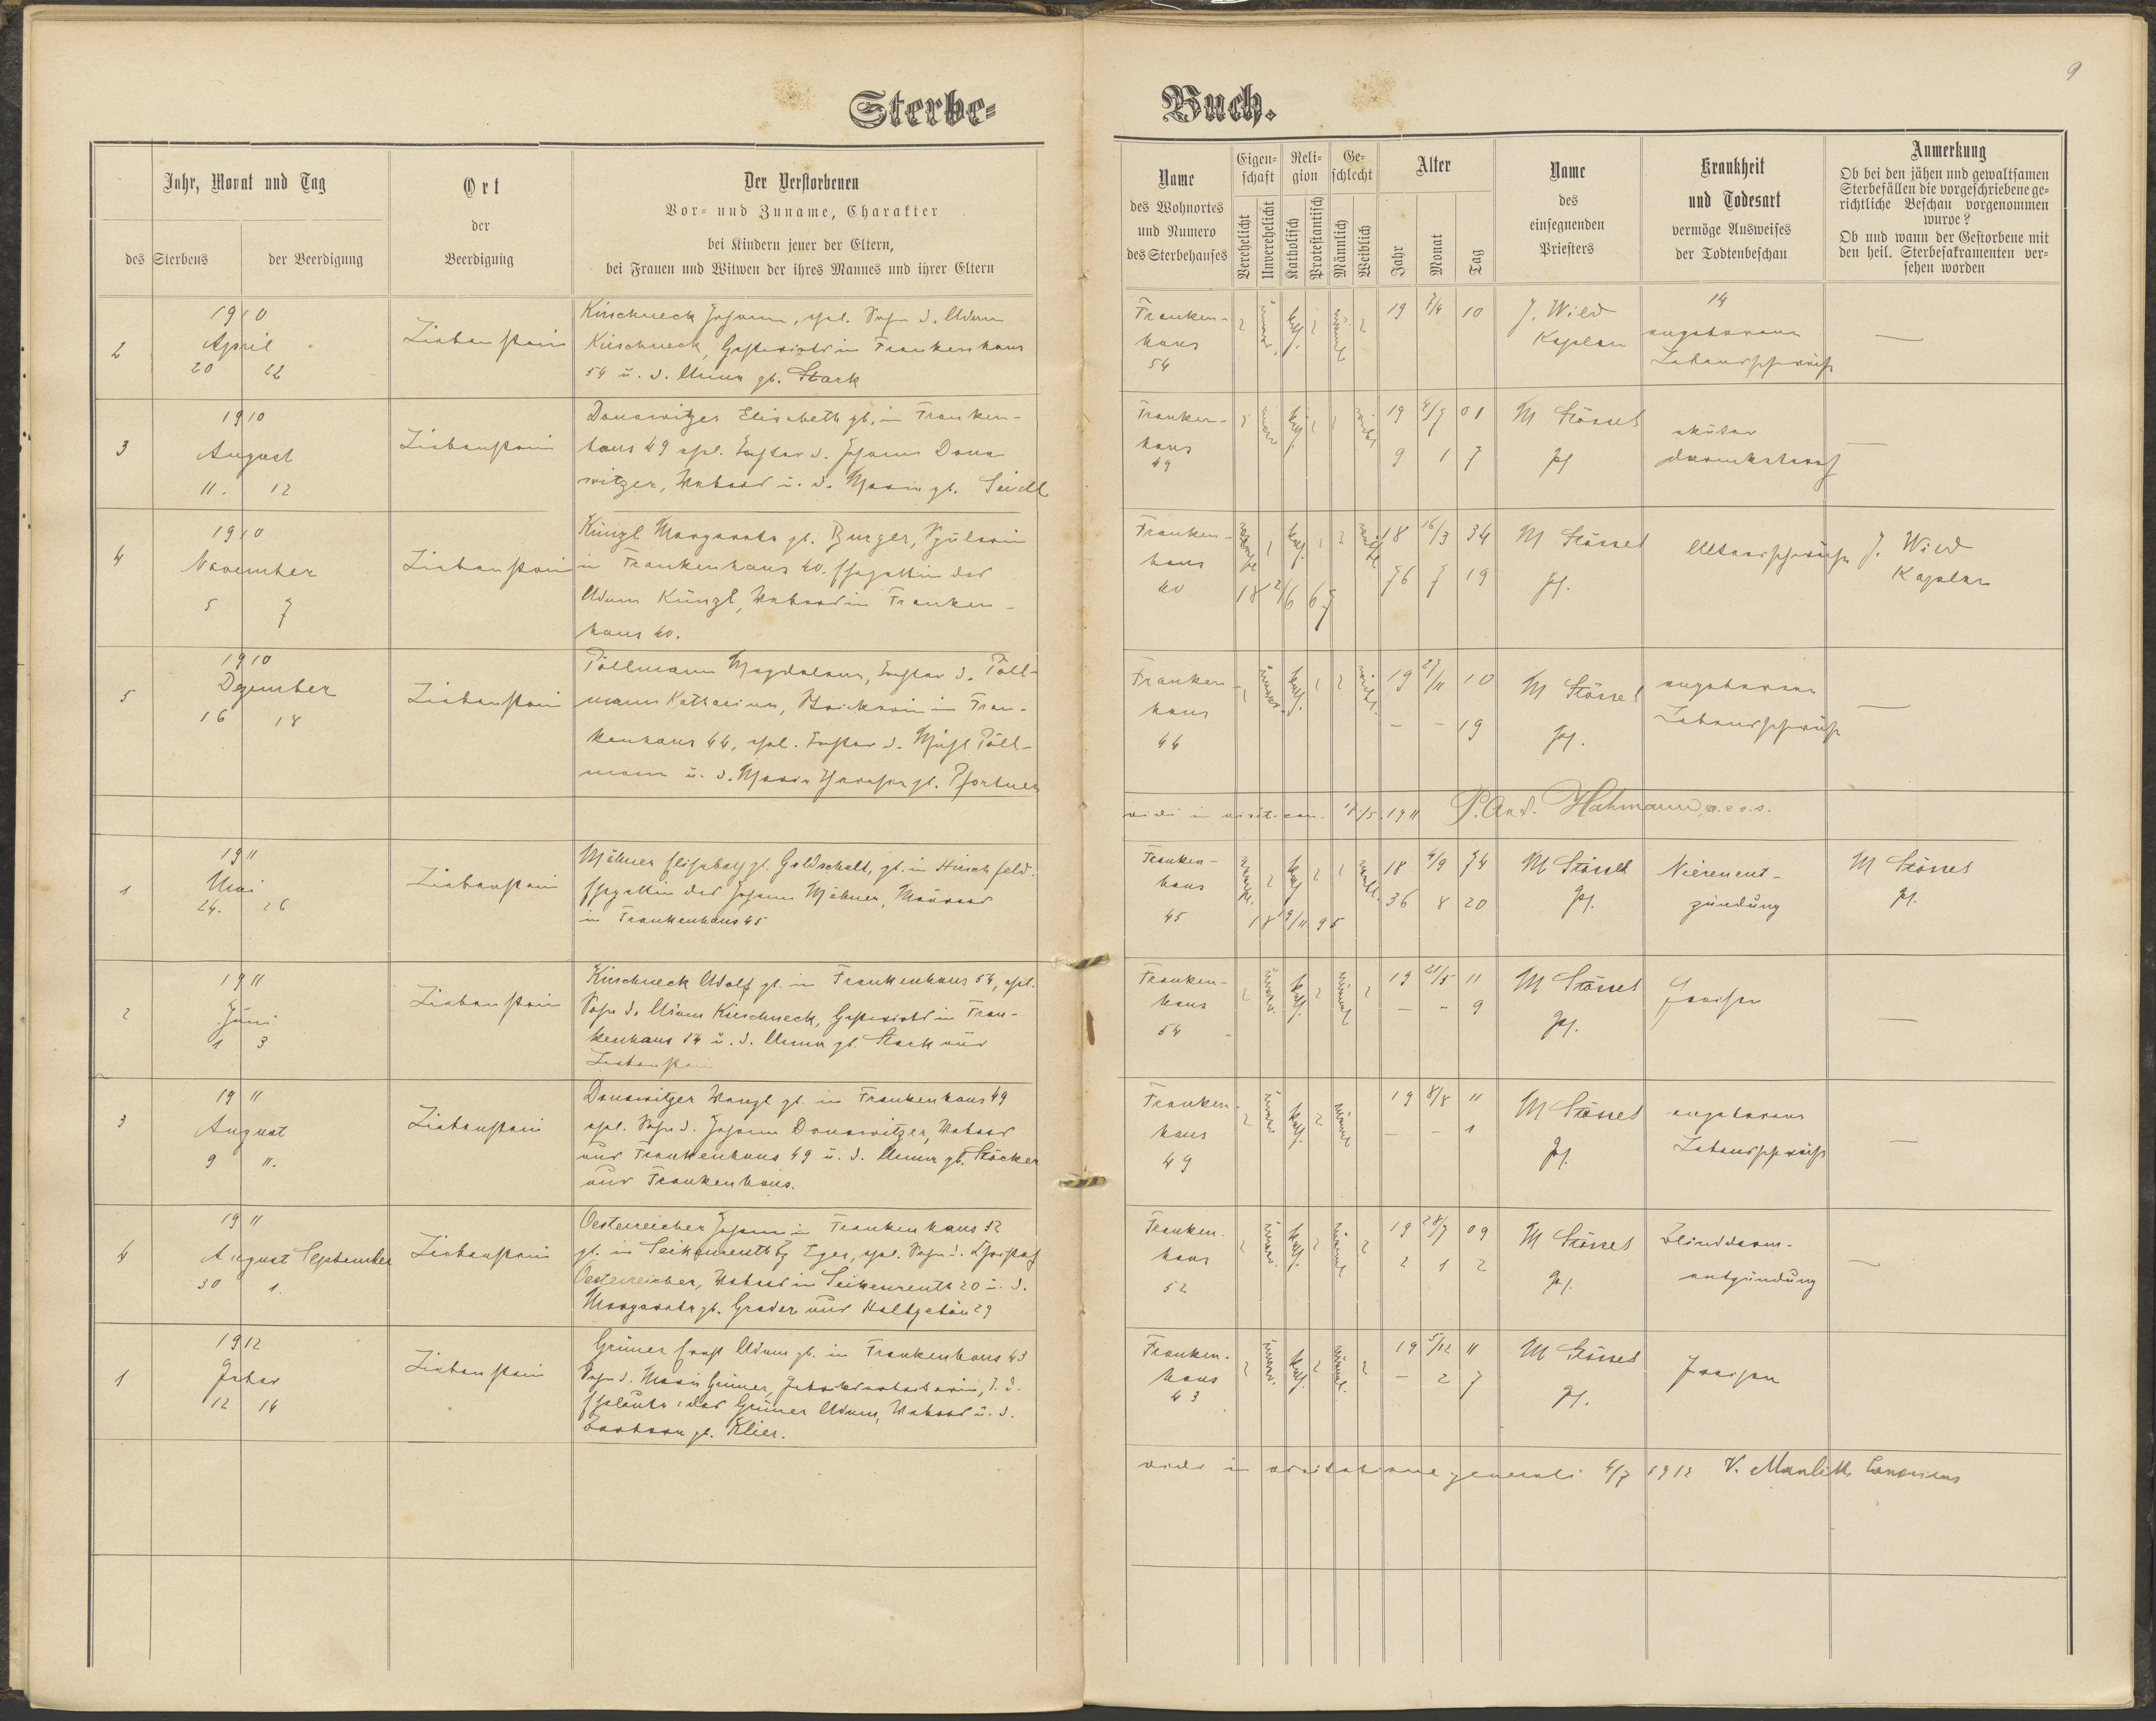 9
Sterbe- Buch.
Jahr, Monat und Tag
des Sterbens
der Beerdigung
Ort
der
Beerdigung
Der Verstorbenen
Vor- und Zuname, Charakter
bei Kindern jener der Eltern,
bei Frauen und Witwen der ihres Mannes und ihrer Eltern
Name
des Wohnortes
und Numero
des Sterbehauses
Eigen-
schaft
Verehelicht
Unverehelicht
Reli-
gion
Katholisch
Protestantisch
Ge-
schlecht
Männlich
Weiblich
Alter
Jahr
Monat
Tag
Name
des
einsegnenden
Priesters
Krankheit
und Todesart
vermöge Ausweises
der Todtenbeschau
Anmerkung
Ob bei den jähen und gewaltsamen
Sterbefällen die vorgeschriebene ge-
richtliche Beschau vorgenommen
wurde?
Ob und wann der Gestorbene mit
den heil. Sterbesakramenten ver-
sehen worden
2
1910
April
20 22
Liebenstein
Kirschneck Johann, ehel. Sohn d. Adam
Kirschneck, Gastwirts in Frankenhaus
54 u. d. Anna gb. Stark
Franken-
haus
54
unver.
kath.
männl.
19 7/4 10
J. Wild
Kaplan
14
angeborene
Lebensschwäche
—
3
1910
August
11. 12
Liebenstein
Donawitzer Elisabeth gb. in Franken-
haus 49 ehel. Tochter d. Johann Dona-
witzer, Webers u. d. Maria gb. Seidl
Franken-
haus
49
kath.
weibl.
19 4/7 01
9 1 7
M Stössel
Pf
akuter
Darmkatarrh
—
4
1910
November
5 7
Liebenstein
Künzl Margareta gb. Burger, Spulerin
in Frankenhaus 40. Ehegattin des
Adam Künzl, Webers in Franken-
haus 40.
Franken-
haus
40
kath.
weibl
18 16/3 34
76 7 19
18 12/6 67
M Stössel
Pf.
Altersschwäche
J. Wild
Kaplan
5
1910
Dezember
16 18
Liebenstein
Töllmann Magdalena, Tochter d. Töll-
mann Katharina, in Fran-
kenhaus 44, ehel. Tochter d. Töll-
mann u. d. Maria gb. Pfortner
Franken-
haus
44
unver.
kath.
weibl.
19 27/11 10
— — 19
M Stössel
Pf.
angeborene
Lebensschwäche
—
vidi in visit. can. 17/5. 1911 P. And. Hahmann, a.e.s.s.
1
1911
Mai
24. 26
Liebenstein
Mähner Elisabeth gb. Goldschalt, gb. in Hirschfeld.
Ehegattin des Johann Mähner, Maurers
in Frankenhaus 45
Franken-
haus
45
kath
weibl.
18 4/9 74
36 8 20
18 19/11 95
M Stössel
Pf.
Nierenent-
zündung
M Stössel
Pf.
2
1911
Juni
1 3
Liebenstein
Kirschneck Adolf gb. in Frankenhaus 54, ehel.
Sohn d. Adam Kirschneck, Gastwirts in Fran-
kenhaus 54 u. d. Anna gb. Stark aus
Liebenstein
Franken-
haus
54
unver.
kath.
männl
19 21/5 11
— — 9
M Stössel
Pf.
Fraisen
—
3
1911
August
9 11.
Liebenstein
Donawitzer Wenzl gb. in Frankenhaus 49
ehel. Sohn d. Johann Donawitzer, Webers
aus Frankenhaus 49 u. d. Anna gb. Stöcker
aus Frankenhaus.
Franken-
haus
49
unver
kath.
männl
19 8/8 11
— — 1
M Stössel
Pf.
angeborene
Lebensschwäche
—
4
1911
August September
30 1.
Liebenstein
Oesterreicher Johann in Frankenhaus 52
gb. in Seikenreuth Bz Eger, ehel. Sohn d. Christof
Oesterreicher, Webers in Seikenreuth 20 u. d.
Margareta gb. Grader aus Haltgetön 29
Franken-
haus
52
unver.
kath.
männl
19 28/7 09
2 1 2
M Stössel
Pf.
Blinddarm-
entzündung
—
1
1912
Feber
12 14
Liebenstein
Grüner Ernst Adam gb. in Frankenhaus 43
Sohn d. Maria Grüner, Fabriksarbeiterin, T. d.
Eheleute: des Grüner Adam, Webers u. d.
Barbara gb. Klier.
Franken-
haus
43
unver.
kath.
männl.
19 5/12 11
— 2 7
M Stössel
Pf.
Fraisen
vidi in visitatione generali 4/7 1912 V. Canonicus